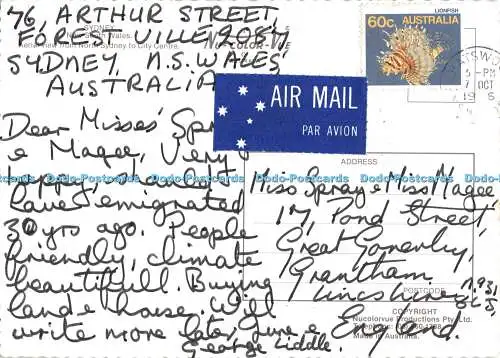 76, ARTHUR STREET,
FORESTVILLE 2087
SYDNEY, N.S. WALES,
AUSTRALIA
SYDNEY
Wales.
Aerial view from North Sydney to City Centre.
NU-COLOR-VUE
LIONFISH
60c AUSTRALIA
5-PM
7 OCT
19
AIR MAIL
PAR AVION
Dear Misses Spray
& Magee, Very
happy
have emigrated
30 yrs ago. People
friendly, climate
beautifull. Buying
land & house. Will
write more later June &
George Liddle.
ADDRESS
Miss Spray & Miss Magee
17, Pond Street,
Great Gonerby,
Grantham,
Lincshire,
England.
POSTCODE
COPYRIGHT
Nucolorvue Productions Pty. Ltd.
Made in Australia.
Dodo-Postcards Dodo-Postcards Dodo-Postcards Dodo-Postcards Dodo-Postcards